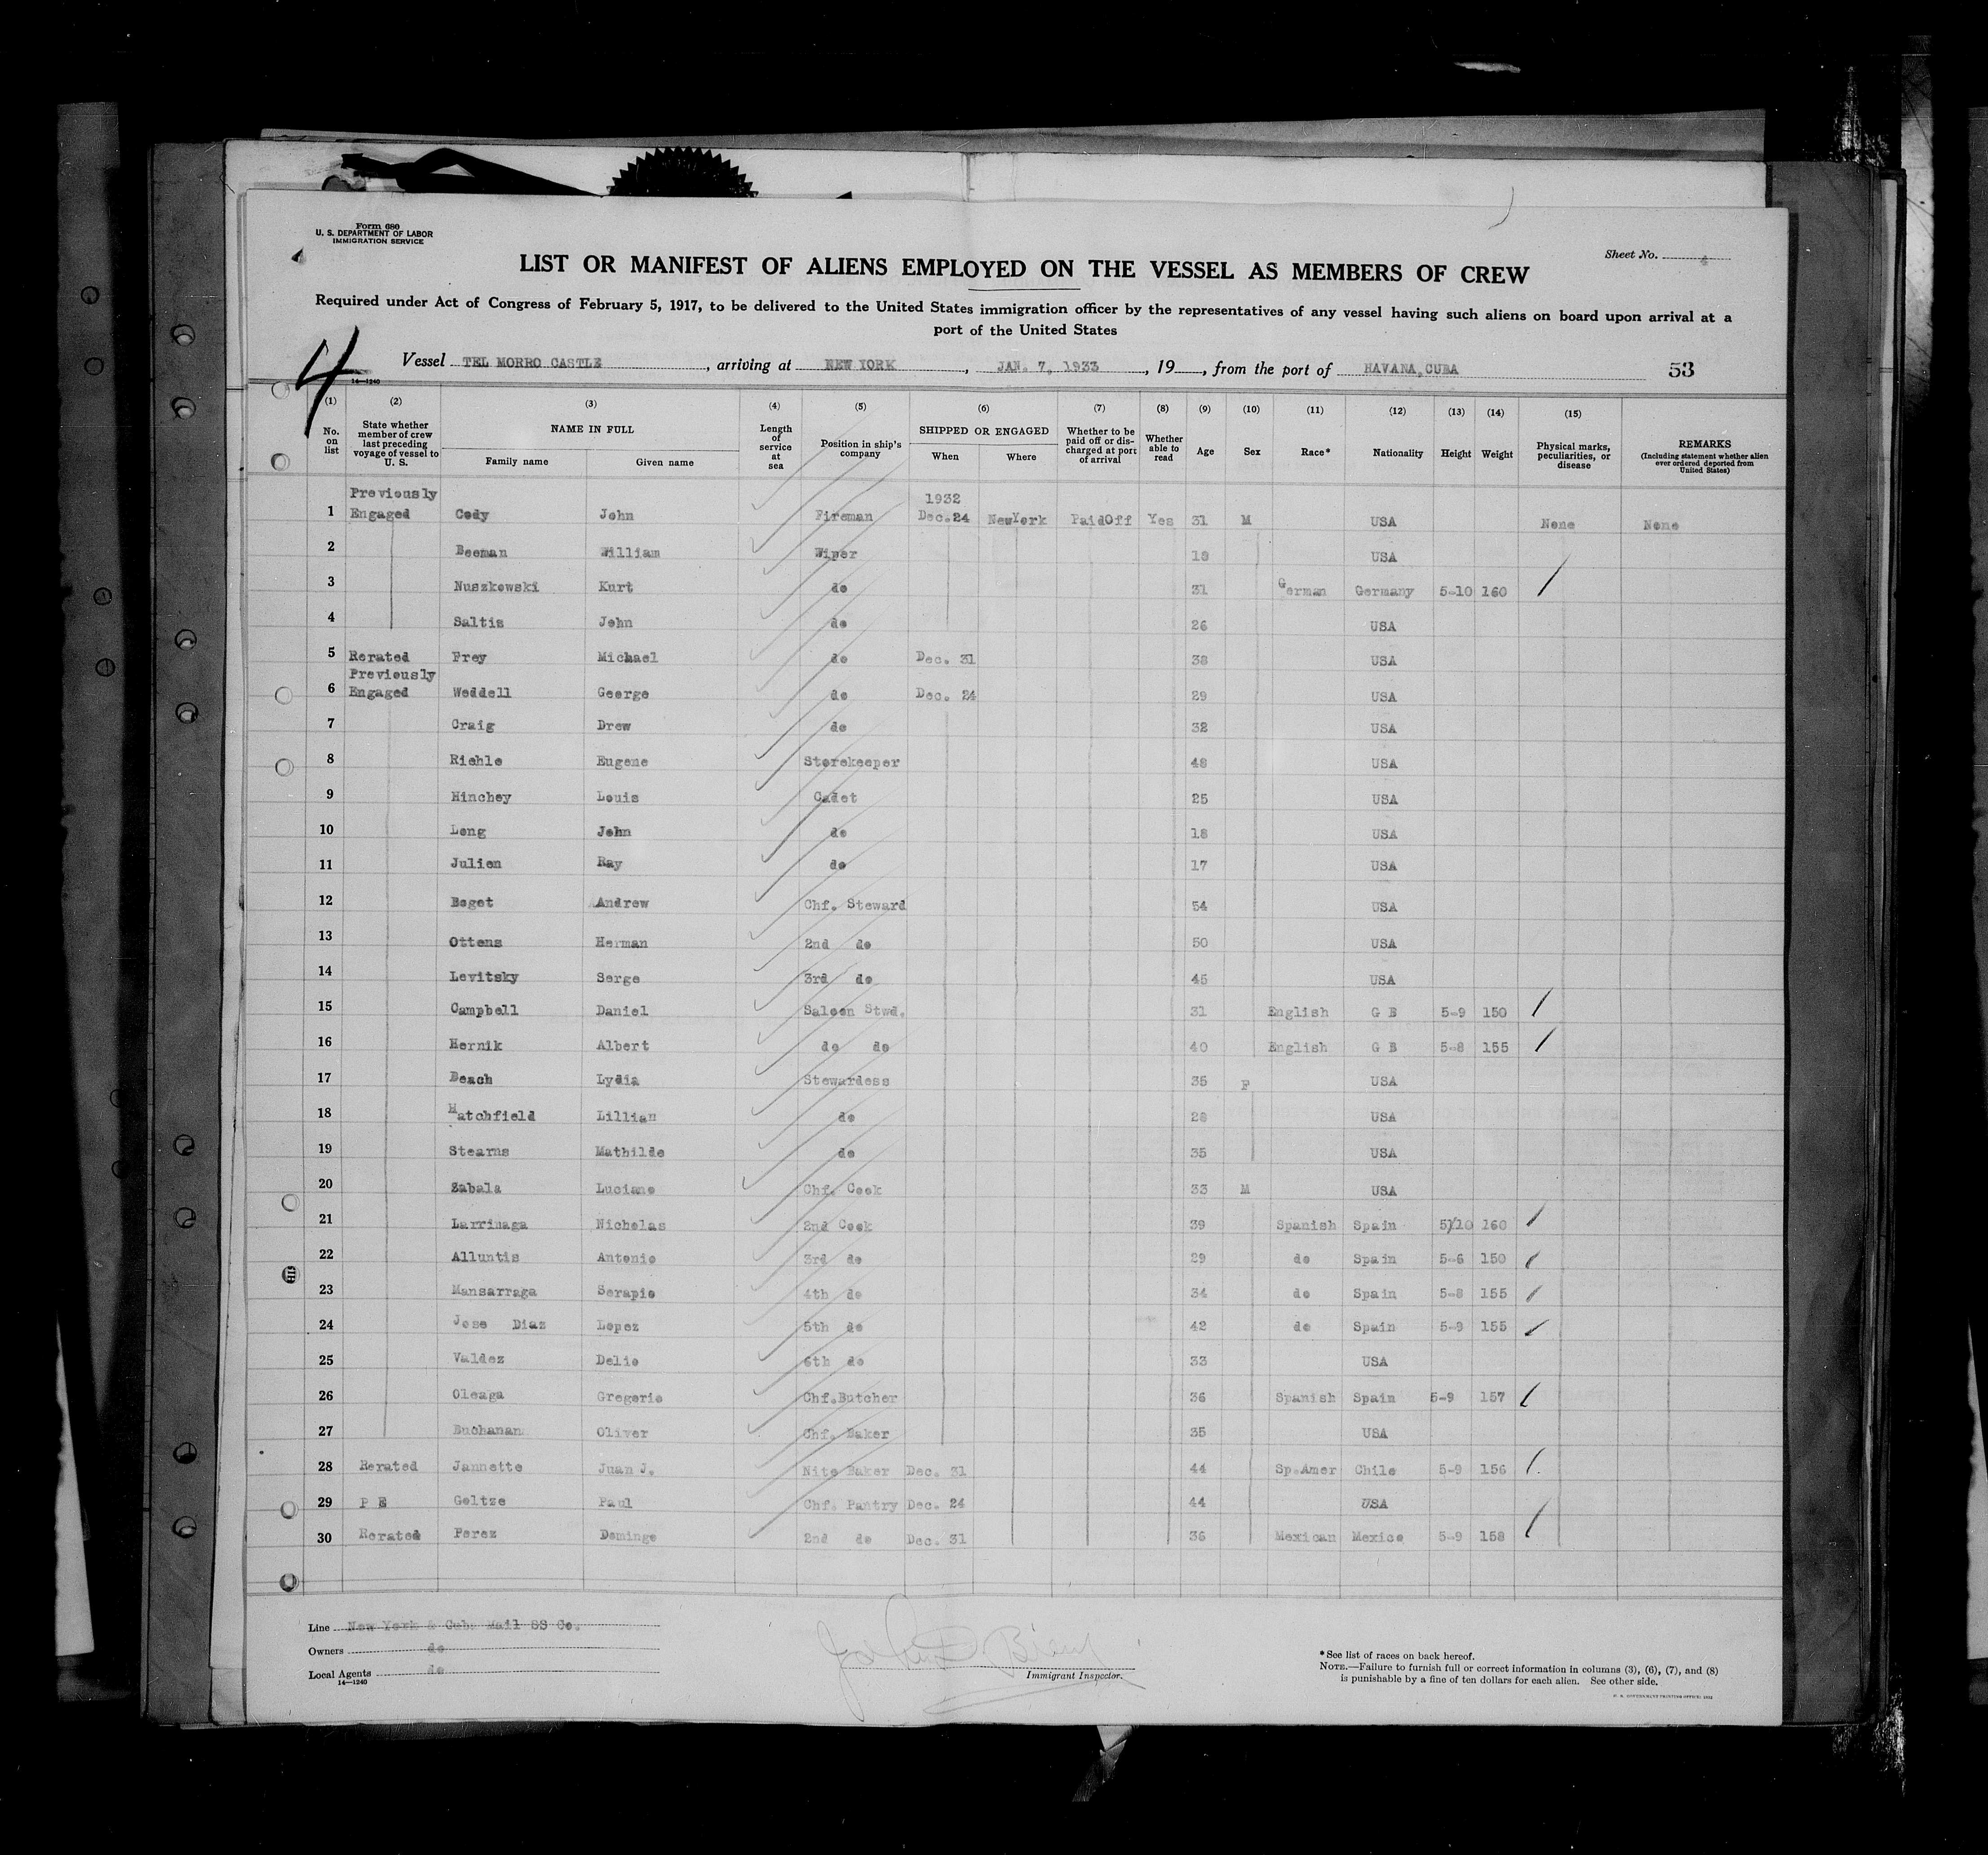 Form 680
U. S. DEPARTMENT OF LABOR
IMMIGRATION SERVICE
Sheet No. 4
LIST OR MANIFEST OF ALIENS EMPLOYED ON THE VESSEL AS MEMBERS OF CREW
Required under Act of Congress of February 5, 1917, to be delivered to the United States immigration officer by the representatives of any vessel having such aliens on board upon arrival at a
port of the United States
4
Vessel TEL MORRO CASTLE, arriving at NEW YORK, JAN. 7, 1933, 19__, from the port of HAVANA, CUBA 53
14—1240
(1) No. on list
(2) State whether member of crew last preceding voyage of vessel to U. S.
(3) NAME IN FULL Family name Given name
(4) Length of service at sea
(5) Position in ship's company
(6) SHIPPED OR ENGAGED When Where
(7) Whether to be paid off or discharged at port of arrival
(8) Whether able to read
(9) Age
(10) Sex
(11) Race*
(12) Nationality
(13) Height
(14) Weight
(15) Physical marks, peculiarities, or disease
REMARKS (Including statement whether alien ever ordered deported from United States)
Previously 1932
1 Engaged Cody John Fireman Dec.24 NewYork PaidOff Yes 31 M USA None None
2 Beeman William Wiper 18 USA
3 Nuszkowski Kurt do 31 German Germany 5-10 160
4 Saltis John do 26 USA
5 Rerated Frey Michael do Dec. 31 38 USA
Previously
6 Engaged Weddell George do Dec. 24 29 USA
7 Craig Drew do 32 USA
8 Riehle Eugene Storekeeper 48 USA
9 Hinchey Louis Cadet 25 USA
10 Long John do 18 USA
11 Julien Ray do 17 USA
12 Beget Andrew Chf. Steward 54 USA
13 Ottens Herman 2nd do 50 USA
14 Levitsky Serge 3rd do 45 USA
15 Campbell Daniel Saloon Stwd. 31 English G B 5-9 150
16 Hernik Albert do do 40 English G B 5-8 155
17 Beach Lydia Stewardess 35 F USA
18 Hatchfield Lillian do 28 USA
19 Stearns Mathilde do 35 USA
20 Zabala Luciano Chf. Cook 33 M USA
21 Larrinaga Nicholas 2nd Cook 39 Spanish Spain 5/10 160
22 Alluntis Antonio 3rd do 29 do Spain 5-6 150
23 Mansarraga Serapio 4th do 34 do Spain 5-8 155
24 Jose Diaz Lopez 5th do 42 do Spain 5-9 155
25 Valdez Delio 6th do 33 USA
26 Oleaga Gregorio Chf.Butcher 36 Spanish Spain 5-9 157
27 Buchanan Oliver Chf. Baker 35 USA
28 Rerated Jannette Juan J. Nite Baker Dec. 31 44 Sp.Amer Chile 5-9 156
29 P E Goltze Paul Chf. Pantry Dec. 24 44 USA
30 Rerated Perez Domingo 2nd do Dec. 31 36 Mexican Mexico 5-9 158
Line New York & Cuba Mail SS Co.
Owners do
Local Agents do
14—1240
Immigrant Inspector.
*See list of races on back hereof.
NOTE.—Failure to furnish full or correct information in columns (3), (6), (7), and (8)
is punishable by a fine of ten dollars for each alien. See other side.
U. S. GOVERNMENT PRINTING OFFICE: 1932